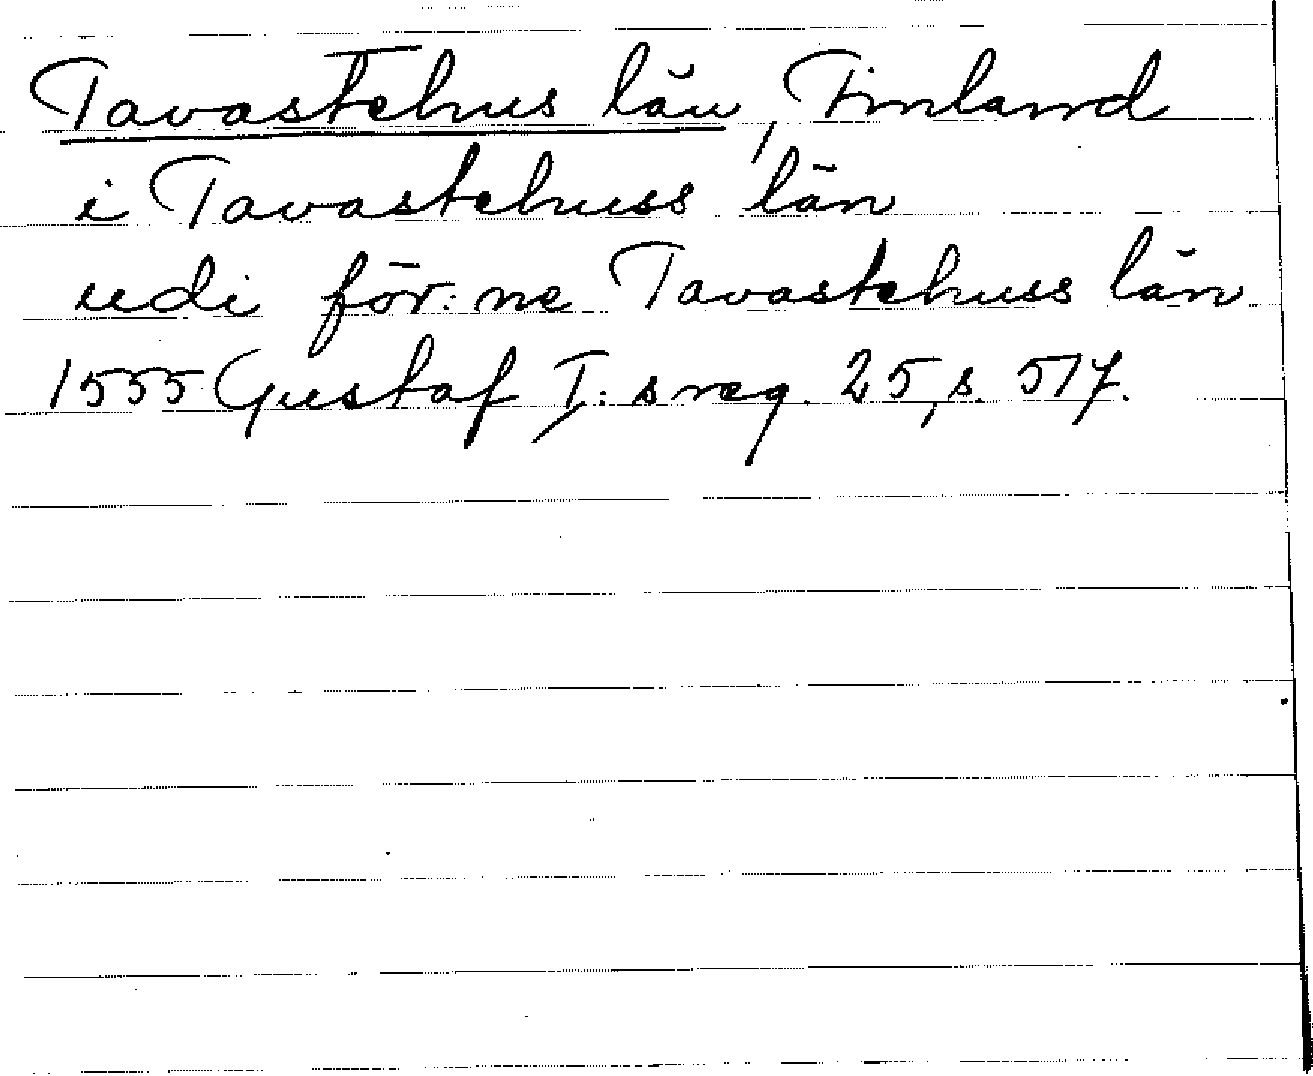 Tavastehus län, Finland
i Tavastehuss län
udi för:ne Tavastehuss län
1555 Gustaf I:s reg. 25, s. 517.